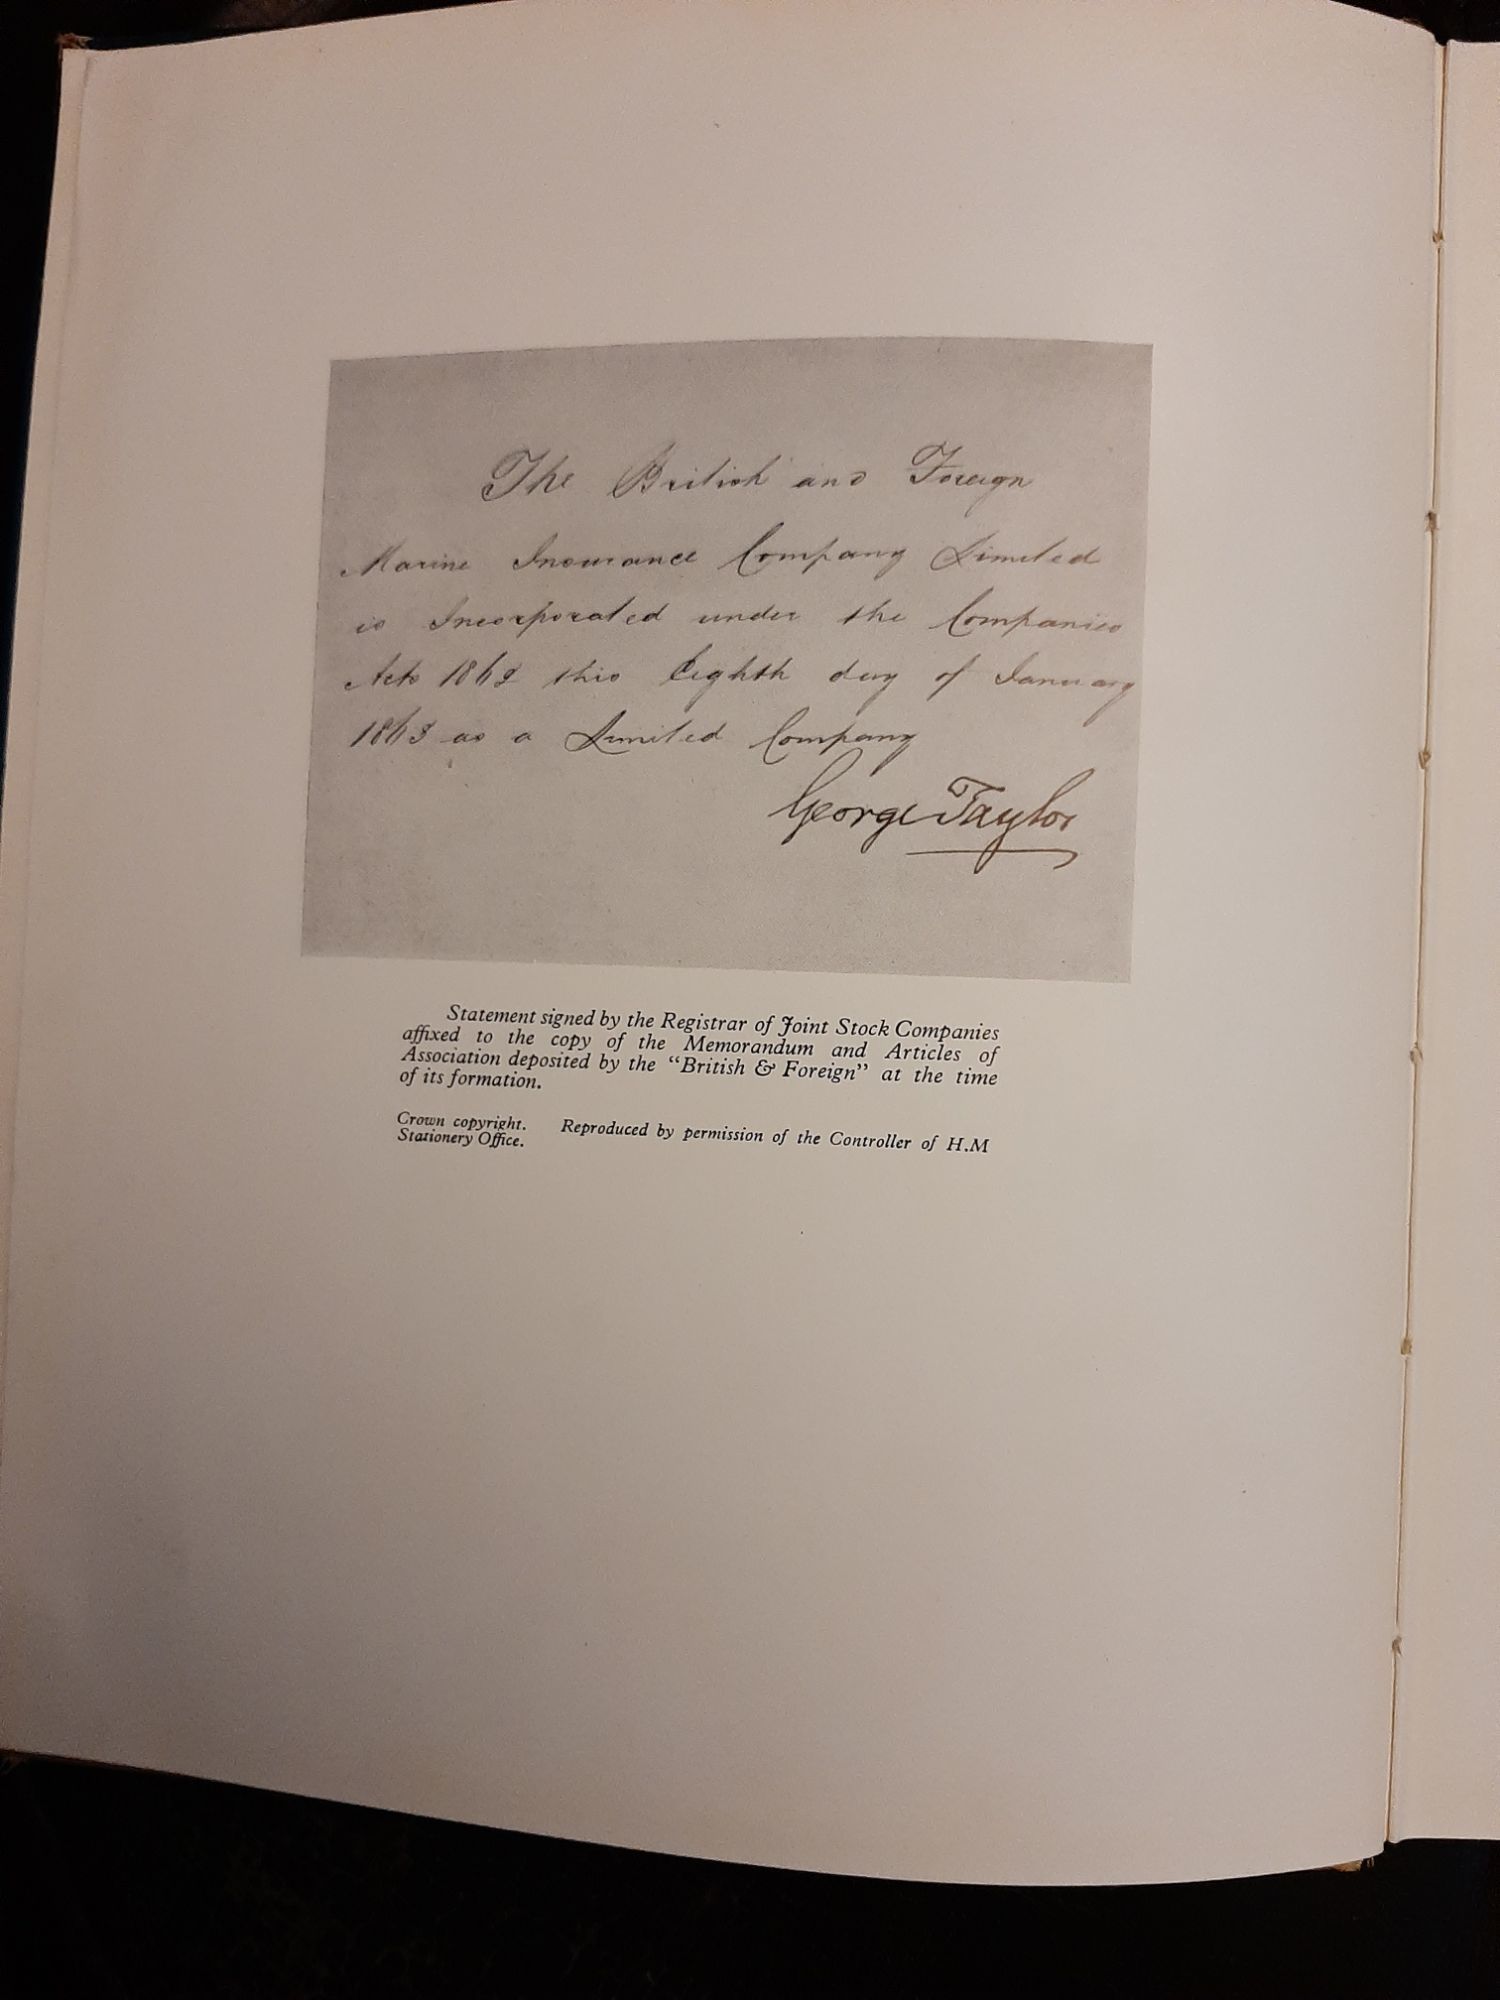 The British and Foreign
Marine Insurance Company Limited
is Incorporated under the Companies
Acts 1862 this Eighth day of January
1863 as a Limited Company
George Taylor
Statement signed by the Registrar of Joint Stock Companies
affixed to the copy of the Memorandum and Articles of
Association deposited by the "British & Foreign" at the time
of its formation.
Crown copyright. Reproduced by permission of the Controller of H.M
Stationery Office.